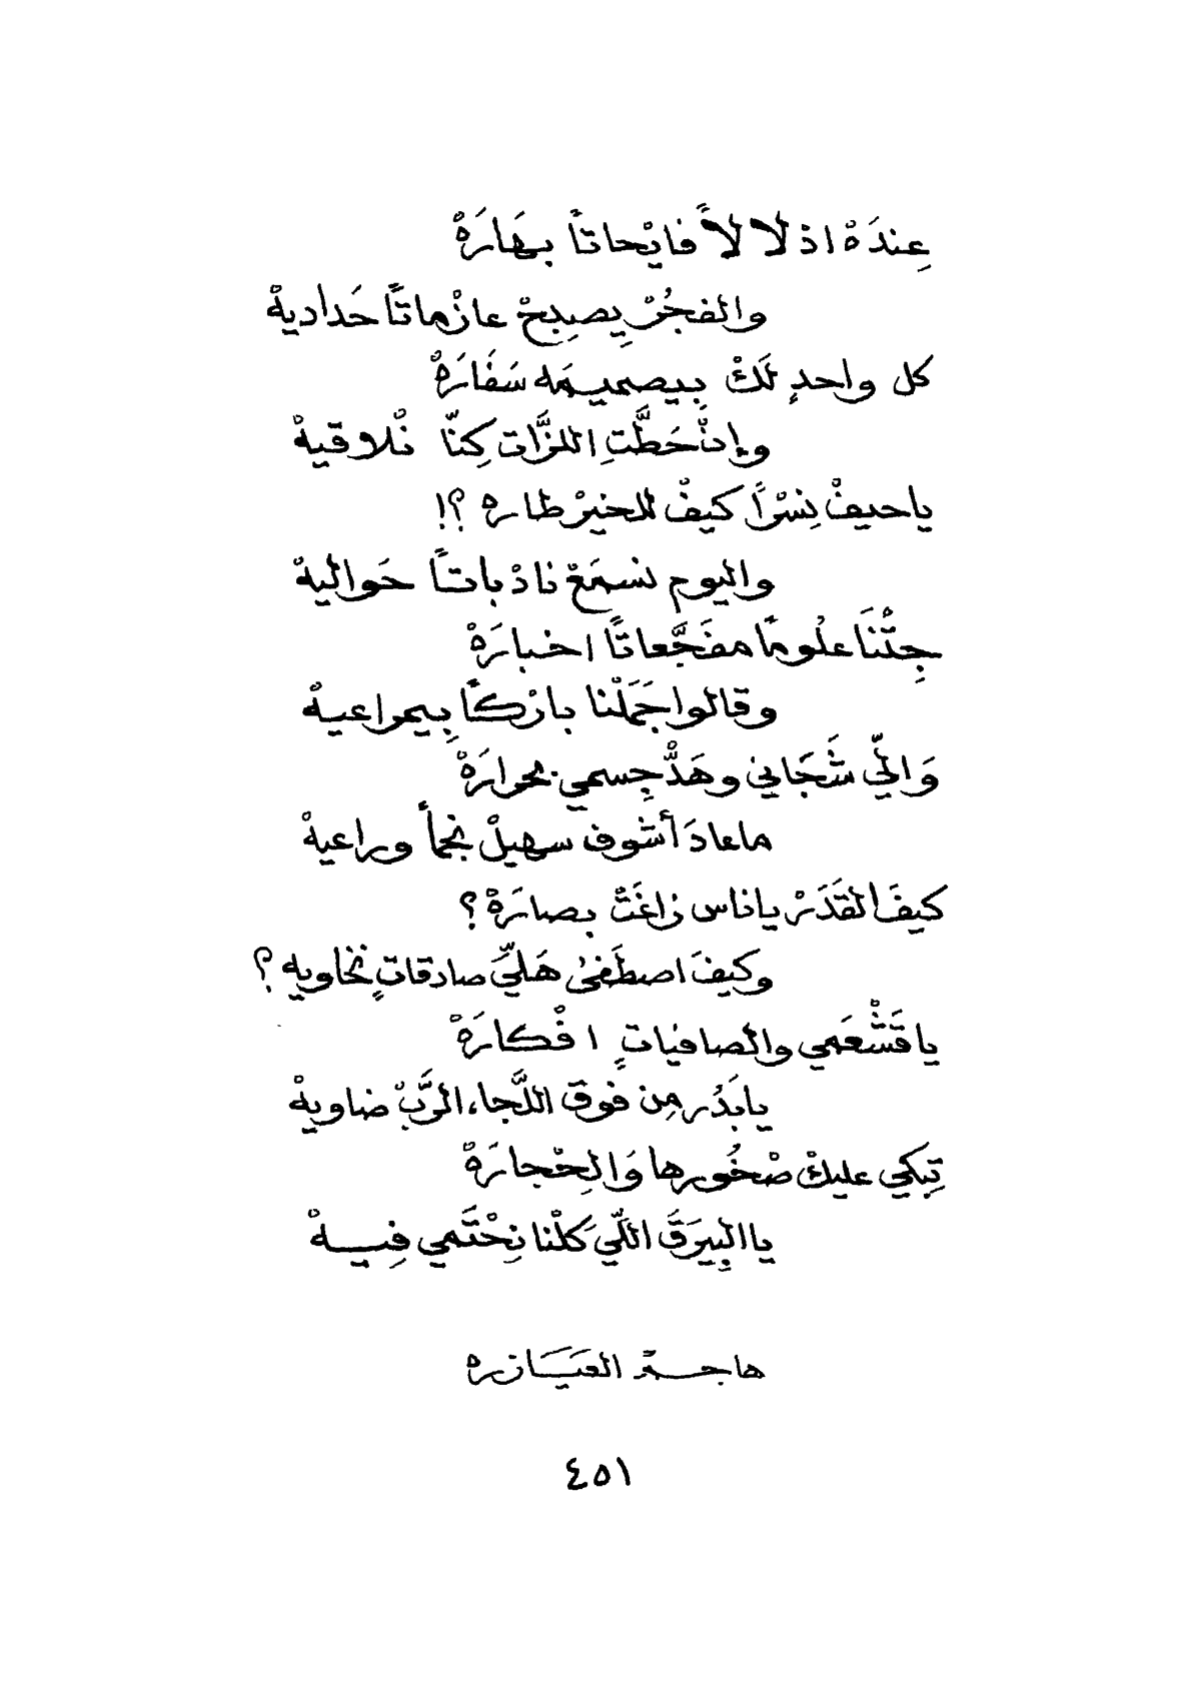 عِندَهْ اذْ لالاً فايْحاتاً بهَارَهْ
والفجُرْ يِصبِحْ عازْماتاً حَداديهْ
كل واحدٍ لَكْ بِيصميمَه سَفَارَهْ
وإنْ حَطَّتِ اللزَّات كِنّا نْلاقيهْ
ياحيفْ نِسْراً كيفْ للخيرْ طاره ؟!
واليوم نسمَعْ نادْباتاً حَواليهْ
جِتْنَا علُوماً مفَجَّعاتاً اخبارَهْ
وقالوا جَمَلْنا بارْكاً بِيمراعيهْ
وَالِّي شَجَاني وهَدّْ جِسمي بحرارَهْ
ماعادَ أشوف سهيلْ نجماً وراعيهْ
كيفَ القَدَرْ ياناس زاغَتْ بصارَهْ ؟
وكيفَ اصطَفىْ هَليِّ صادقاتٍ نخاويه ؟
ياقَشْعَمي والصافياتٍ افْكارَهْ
يابَدُر مِن فوق اللَّجا، الرَّبْ ضاويهْ
تِبكي عليكْ صْخُورها وَالِحْجارَهْ
يا البِيرَقَ اللّي كَلْنا نِحْتَمي فِيـــهْ
هاجـــر العَيَـــازره
٤٥١